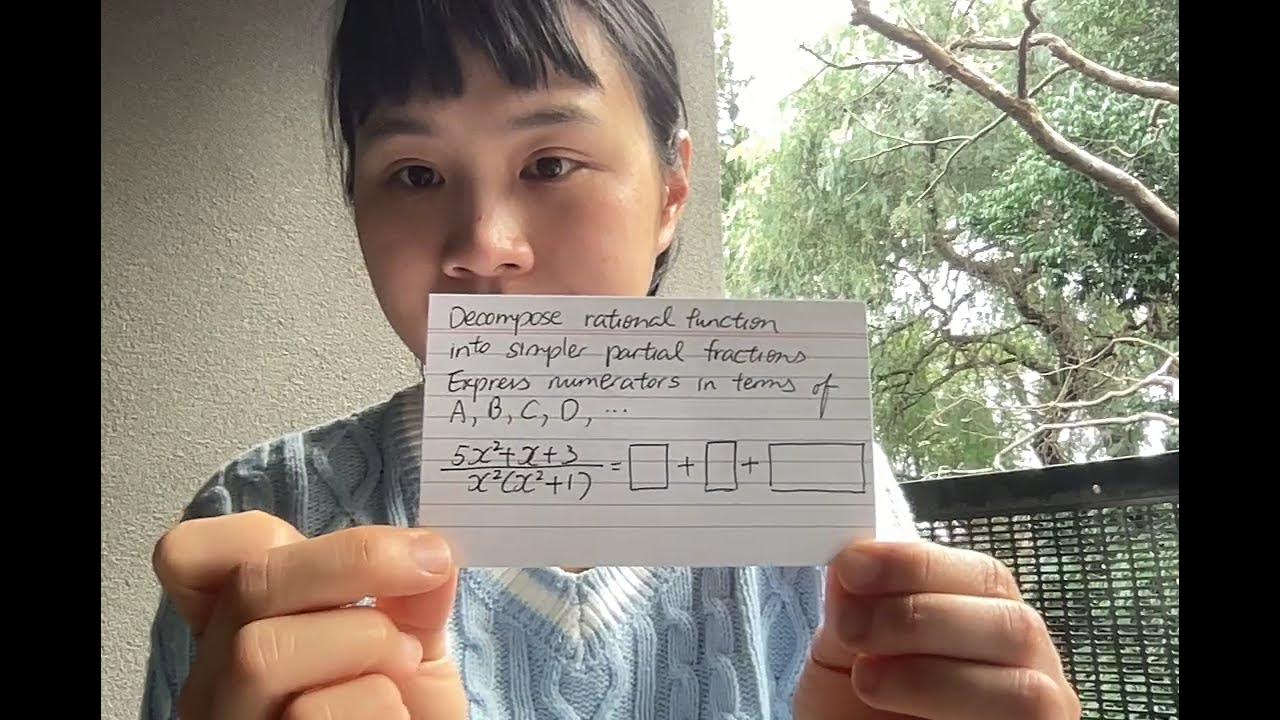 Decompose rational function
into simpler partial fractions
Express numerators in terms of
A, B, C, D, ...
5x²+x+3
x²(x²+1)
= □ + □ + □